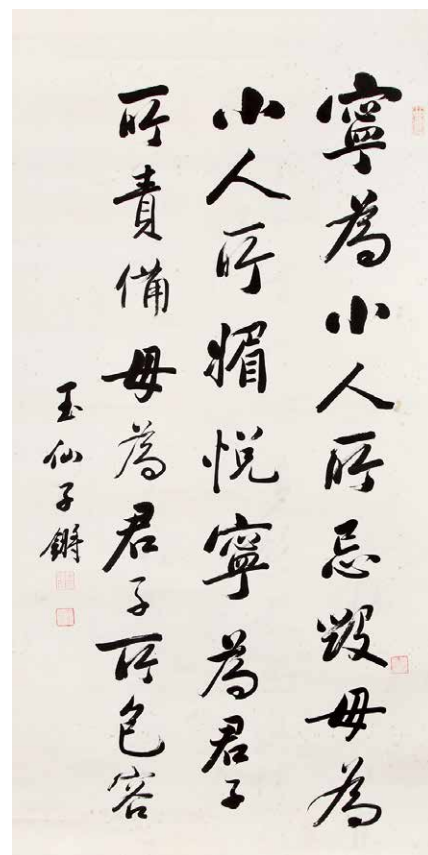 寧為小人所忌毀毋為
小人所媚悅寧為君子
所責備毋為君子所包容
玉仙子鏘